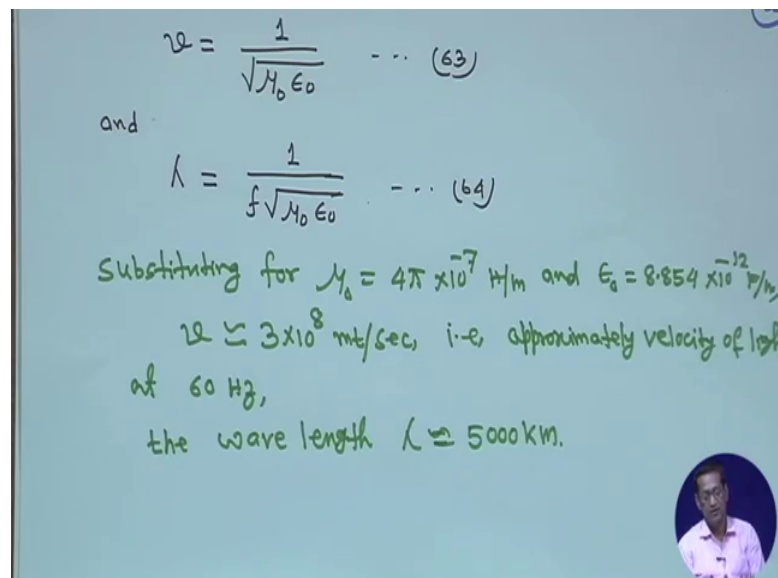 v = 1/√(μ₀ ε₀) --- (63)
and
λ = 1/(f√(μ₀ ε₀)) --- (64)
Substituting for μ₀ = 4π ×10⁻⁷ H/m and ε₀ = 8.854 ×10⁻¹² F/m,
v ≃ 3×10⁸ mt/sec, i.e, approximately velocity of light
at 60 Hz,
the wave length λ ≃ 5000 KM.